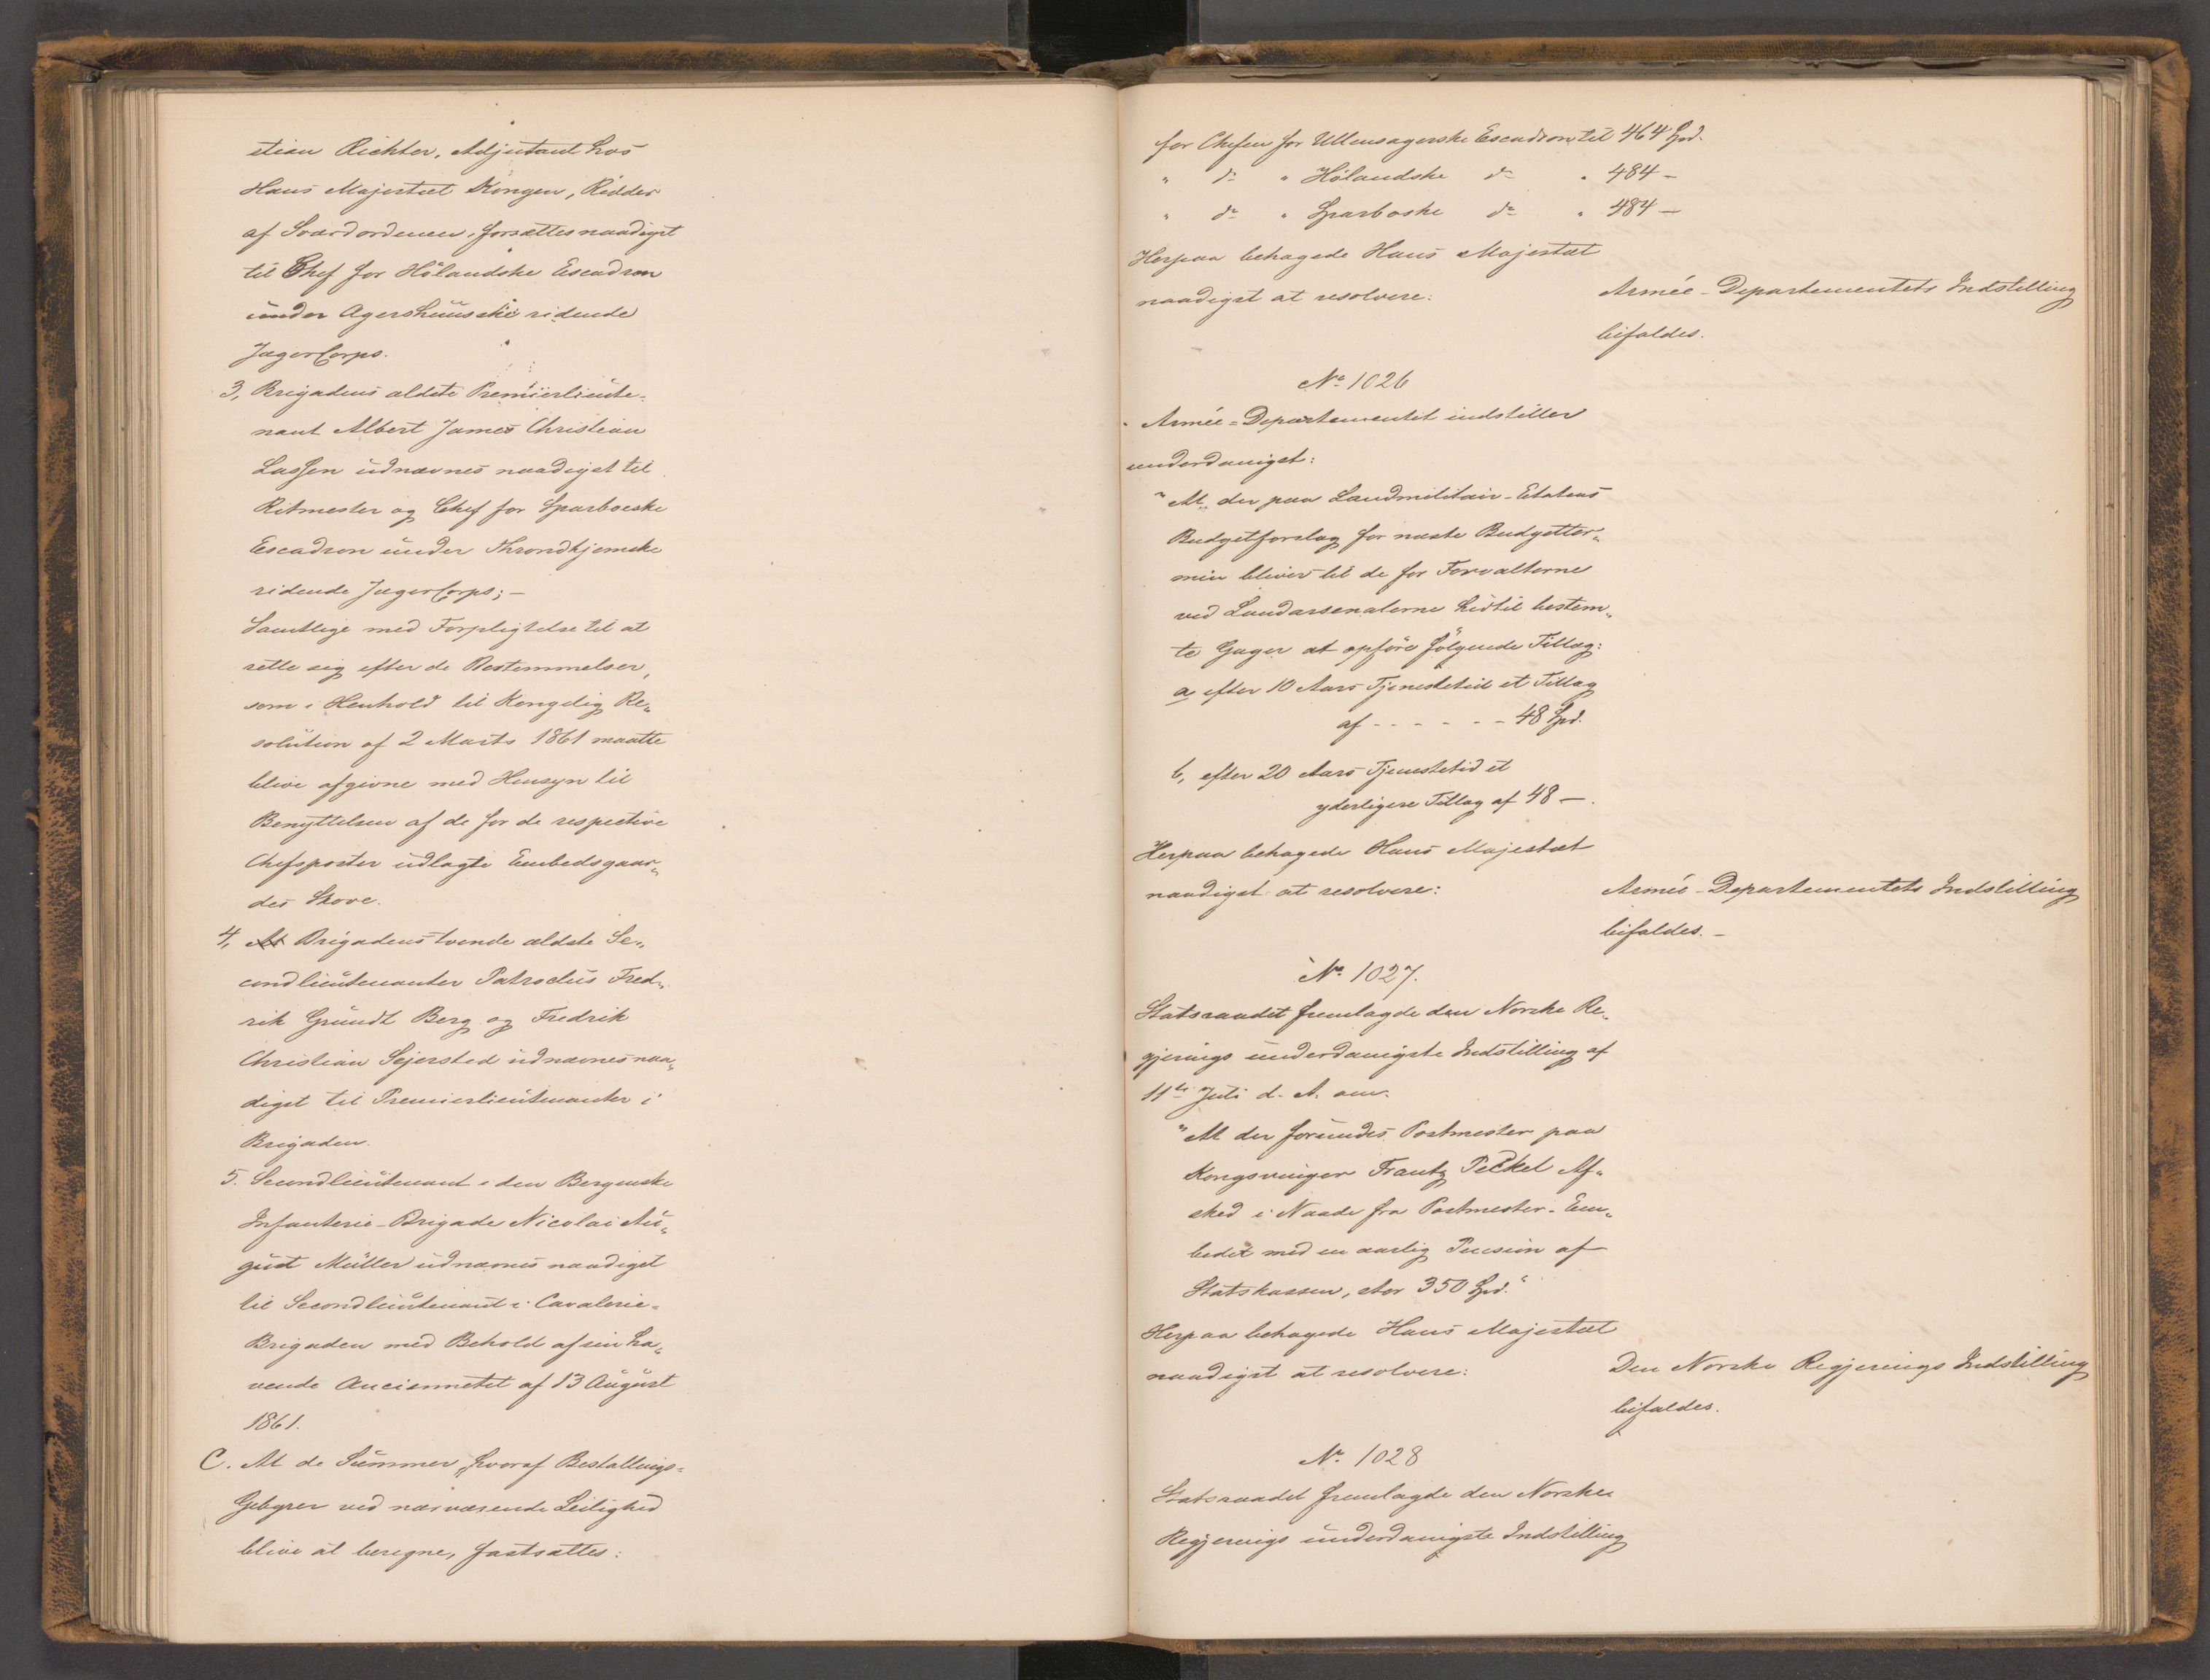 stian Richter, Adjutant hos
Hans Majestæt Kongen, Ridder
af Sværdordenen, forsættes naadigst
til Chef for Hölandske Escadron
under Agershuusske ridende
JægerCorps.
3, Brigadens ældste Premierlieute-
nant Albert James Christian
Lassen udnævnes naadigst til
Ritmester og Chef for Sparboeske
Escadron under Throndhjemske
ridende JægerCorps; —
Samtlige med Forpligtelse til at
rette sig efter de Bestemmelser,
som i Henhold til Kongelig Re„
solution af 2 Marts 1861 maatte
blive afgivne med Hensyn til
Benyttelsen af de for de respective
Chefsposter udlagte Embedsgaar„
des Skove.
4, At Brigadens tvende ældste Se„
condlieutenanter Patroclus Fred„
rik Gründt Berg og Fredrik
Christian Sejersted udnævnes naa„
digst til Premierlieutenanter i
Brigaden.
5. Secondlieutenant i den Bergenske
Infanterie-Brigade Nicolai Au„
gust Müller udnævnes naadigst
til Secondlieutenant i Cavalerie-
Brigaden med Behold af sin ha„
vende Anciennetet af 13 August
1861.
C. At de Summer, hvoraf Bestallings-
Gebyrer ved nærværende Leilighed
blive at beregne, fastsættes:
for Chefen for Ullensagerske Escadron til 464 Spd.
" do " Hölandske do " 484 —
" do " Sparboske do " 484 —
Herpaa behagede Hans Majestæt
naadigst at resolvere:
Armée-Departementets Indstilling
bifaldes.
No 1026
Armée-Departementet indstiller
underdanigst:
"At der paa Landmilitair-Etatens
Budgetforslag for næste Budgetter„
min bliver til de for Forvalterne
ved Landarsenalerne hidtil bestem„
te Gager at opføre følgende Tillæg:
a efter 10 Aars Tjenestetid et Tillæg
af - - - - - - 48 Spd.
b, efter 20 Aars Tjenestetid et
yderligere Tillæg af 48 —.
Herpaa behagede Hans Majestæt
naadigst at resolvere:
Armée-Departementets Indstilling
bifaldes. —
No 1027.
Statsraadet fremlagde den Norske Re„
gjerings underdanigste Indstilling af
11te Juli d. A. om:
"At der forundes Postmester paa
Kongsvinger Frantz Peckel Af„
sked i Naade fra Postmester-Em„
bedet med en aarlig Pension af
Statskassen, stor 350 Spd."
Herpaa behagede Hans Majestæt
naadigst at resolvere:
Den Norske Regjerings Indstilling
bifaldes.
No 1028
Statsraadet fremlagde den Norske
Regjerings underdanigste Indstilling